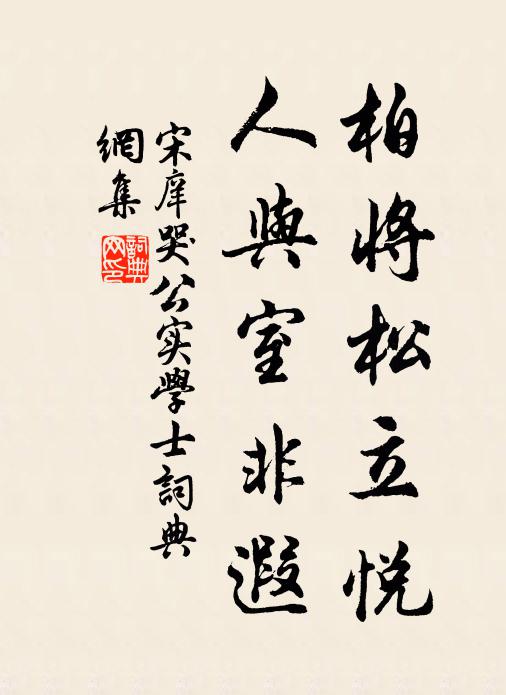 柏將松立悅
人與室非遐
宋庠哭公实學士詞典
網集
詞典
网印